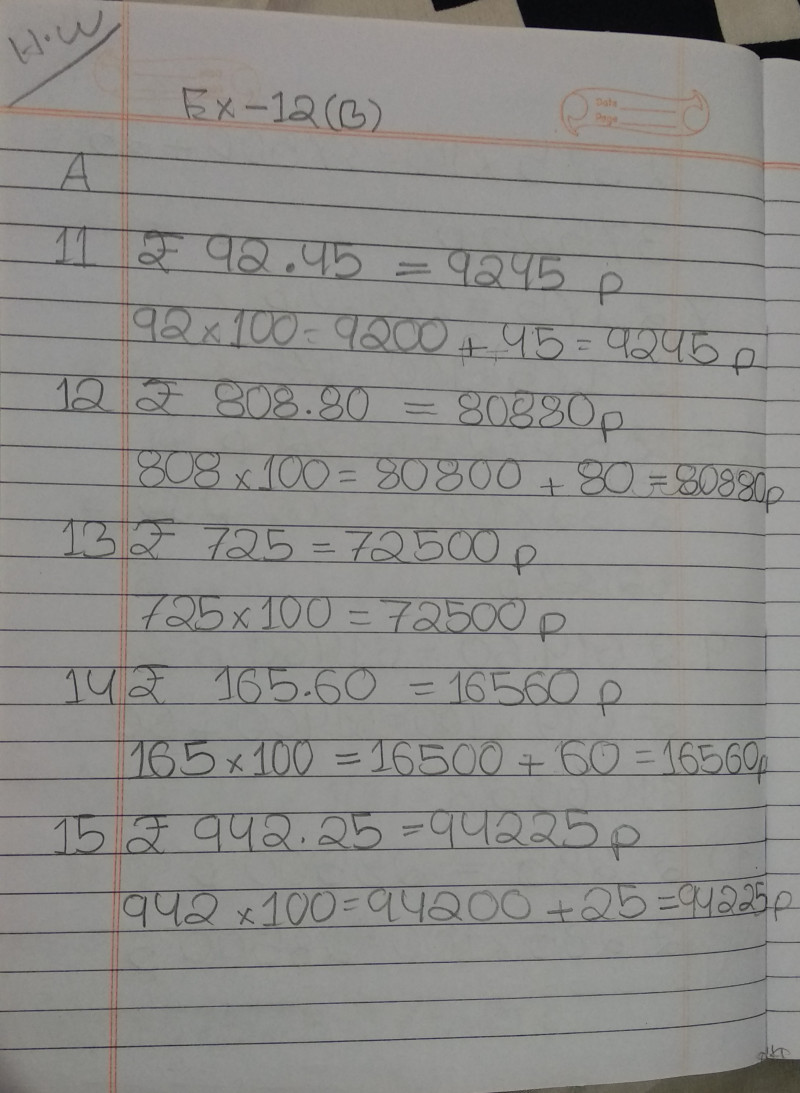 H.W
Ex-12(B)
Date
Page
A
11 ₹ 92.45 = 9245 p
92×100=9200 + 45 = 9245 p
12 ₹ 808.80 = 80880p
808 ×100= 80800 + 80 = 80880p
13 ₹ 725 = 72500 p
725×100 = 72500 p
14 ₹ 165.60 = 16560 p
165×100 = 16500 + 60 = 16560p
15 ₹ 942.25 = 94225 p
942 ×100=94200 + 25 = 94225 p